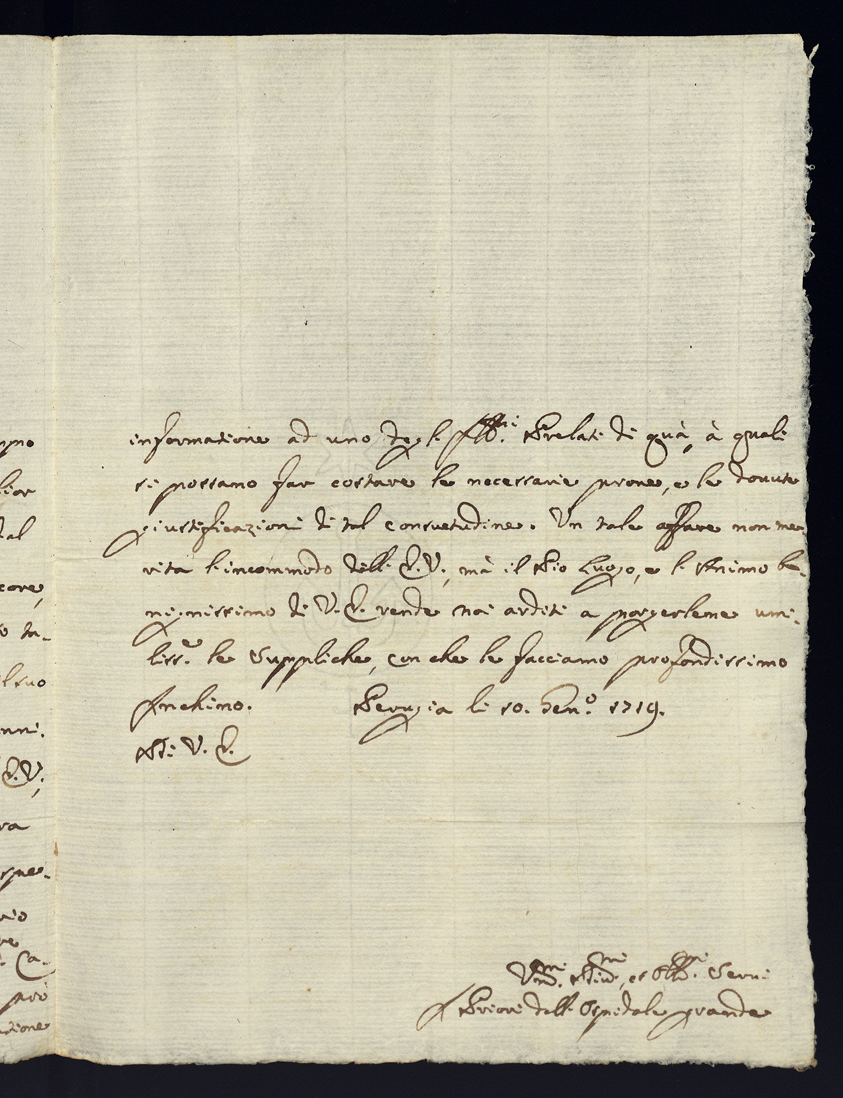 tal
core,
E.V,
ra
Ca-
informatione ad uno degli Ill.mi Prelati di quà, à quali
si possano far costare le necessarie proue, e le douute
giustificazioni di tal consuetudine. Un tale affare non me-
rita l'incommodo dell'E.V., mà il Pio Luogo, e l'Animo be-
nignissimo di V.E. rende noi arditi a porgerlene umi-
liss.e le Suppliche, con che le facciamo profondissimo
Inchino. Perugia li 10. Gen.o 1719.
Di V.E.
Um.mi Div.mi, et Obb.mi Serui
I Priori dell'Ospidale grande